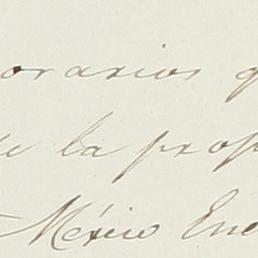 orarios q
e la prop
México Ene